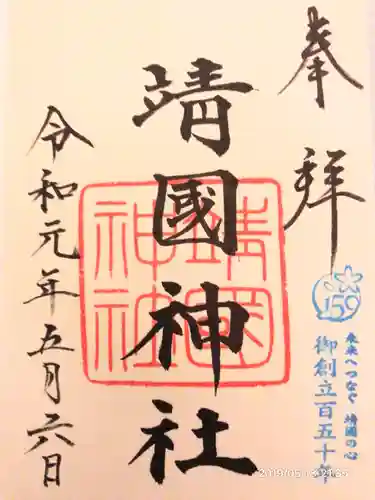 奉拝
靖國神社
靖国神社
令和元年五月六日
150
未来へつなぐ 靖國の心
御創立百五十年